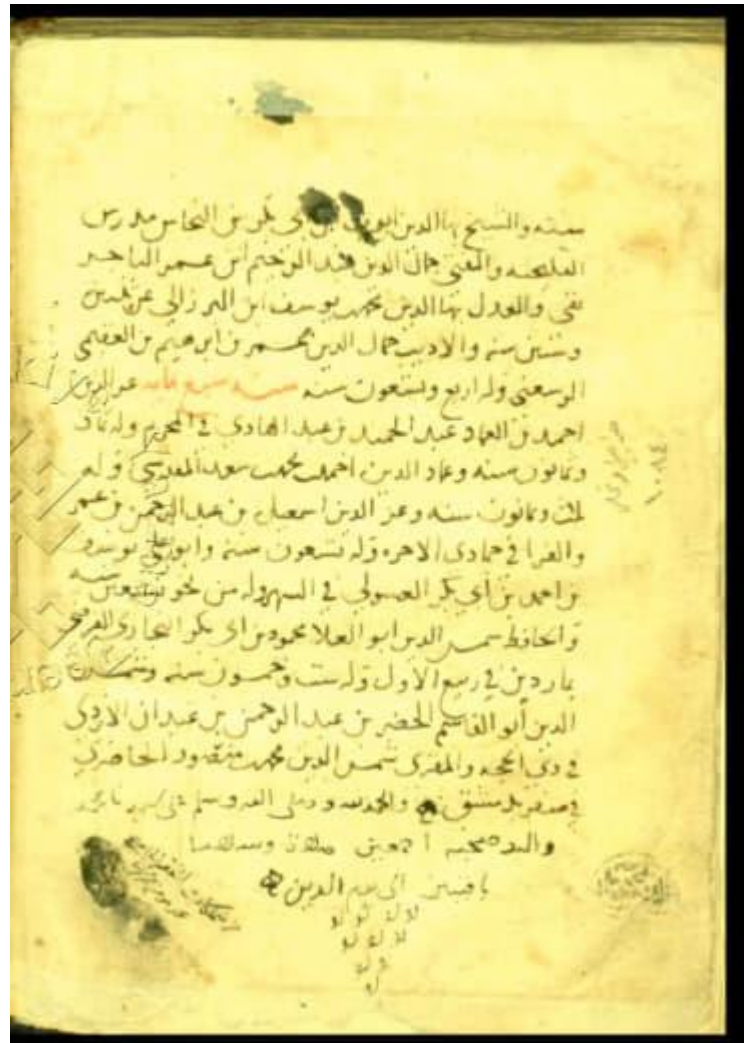 سنه والشيخ بها الدين ابن ابى بكر بن النحاس مدرس
القليجيه والمفتى جمال الدين عبد الرحيم ابن عمر الباجر
بقى والعدل بها الدين محمد بن يوسف ابن البرزالى عن
وستين سنه والاديب جمال الدين عمر بن ابرهيم بن العقيمى
الرسعنى وله اربع وتسعون سنه سنه سبع مايه عز الدين
احمد بن العماد عبد الحميد بن عبد الهادى فى المحرم وله ثمان
وثمانون سنه وعماد الدين احمد بن محمد بن سعد المقدسى وله
ثلث وثمانون سنه وعز الدين اسمعيل بن عبد الرحمن بن عمر
والفرا فى جمادى الاخره وله تسعون سنه وابو على يوسف
بن احمد بن ابى بكر الغسولى فى الشهر وله من نحو تسعين سنه
والحافظ شمس الدين ابو العلا محمود بن ابى بكر البخارى الفرضى
بماردين فى ربيع الاول وله ست وخمسون سنه وشمس
الدين ابو القاسم الخضر بن عبد الرحمن بن عبدان الازدى
فى ذى الحجه والمقرى شمس الدين محمد بن منصور الحاضرى
فى صفر بدمشق والحمد لله وصلى الله وسلم على
واله وصحبه اجمعين صلاة وسلاما
الى يوم الدين
١٠٨٤